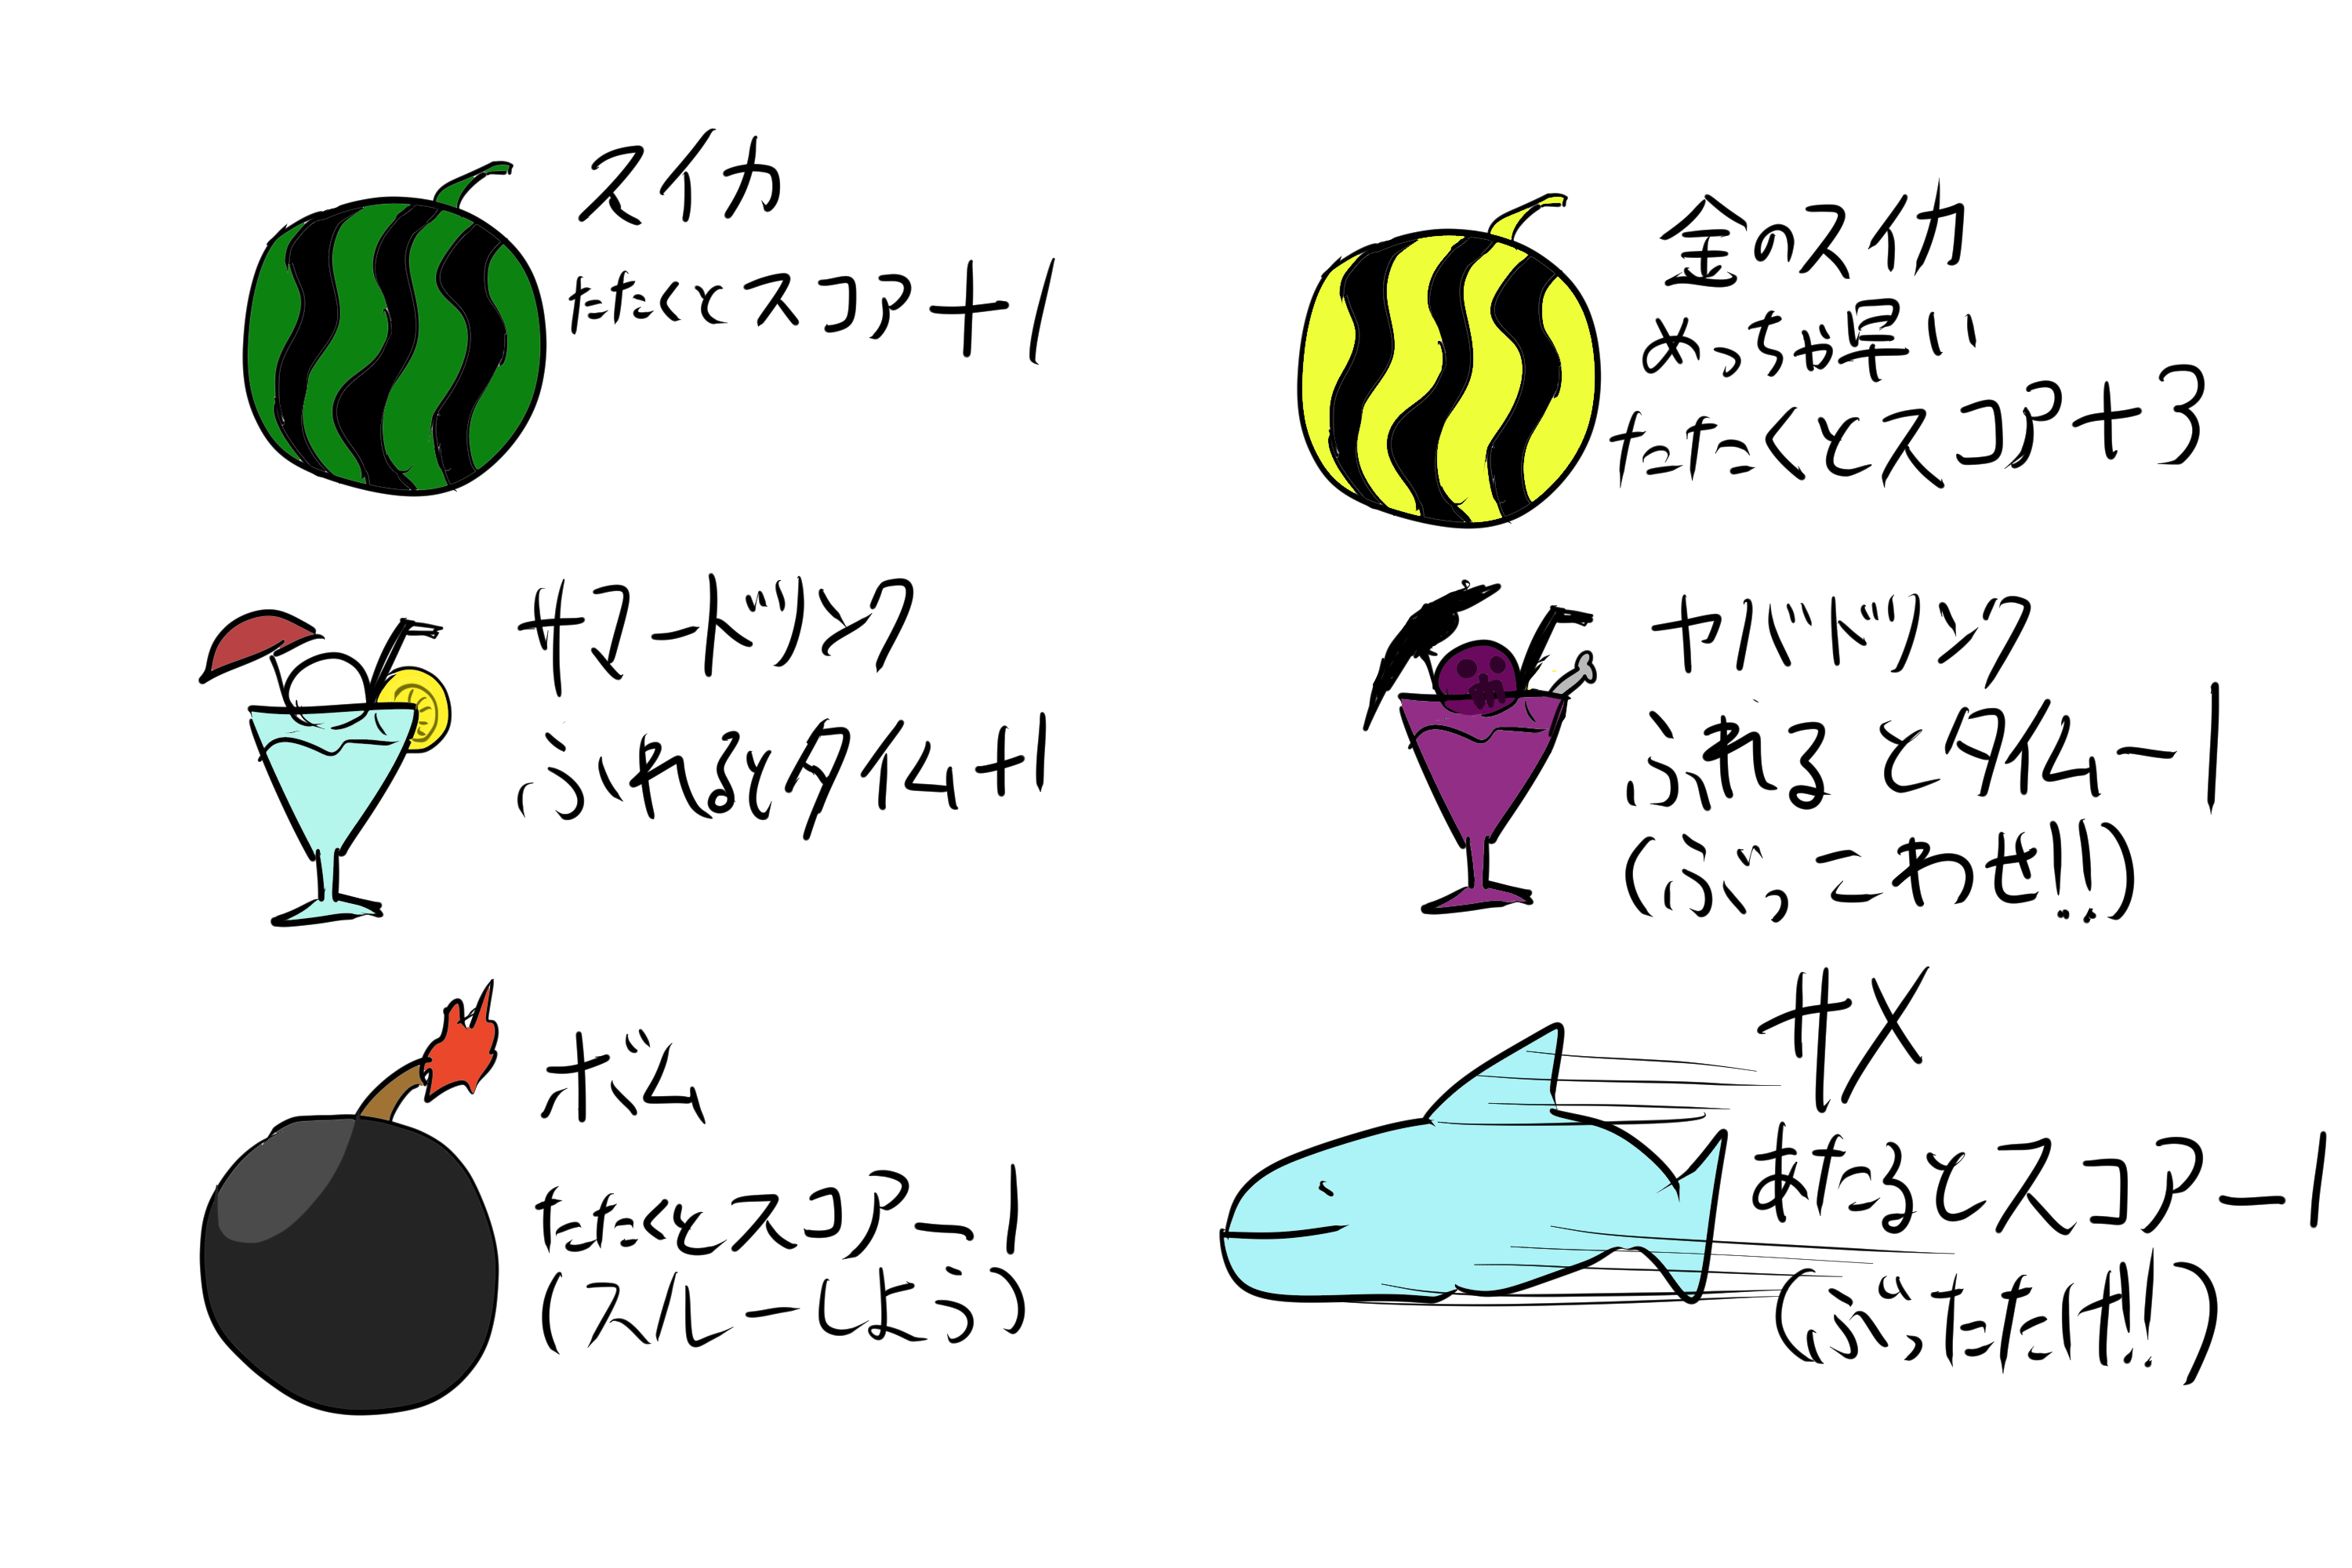 スイカ
たたくとスコア+1
金のスイカ
めっちゃ早い
たたくとスコア+3
サマードリンク
ふれるとタイム+1
ヤバドリンク
ふれるとタイムー1
(ぶっこわせ!!)
ボム
たたくとスコアー1
(スルーしよう)
サメ
あたるとスコアー1
(ぶったたけ!!)